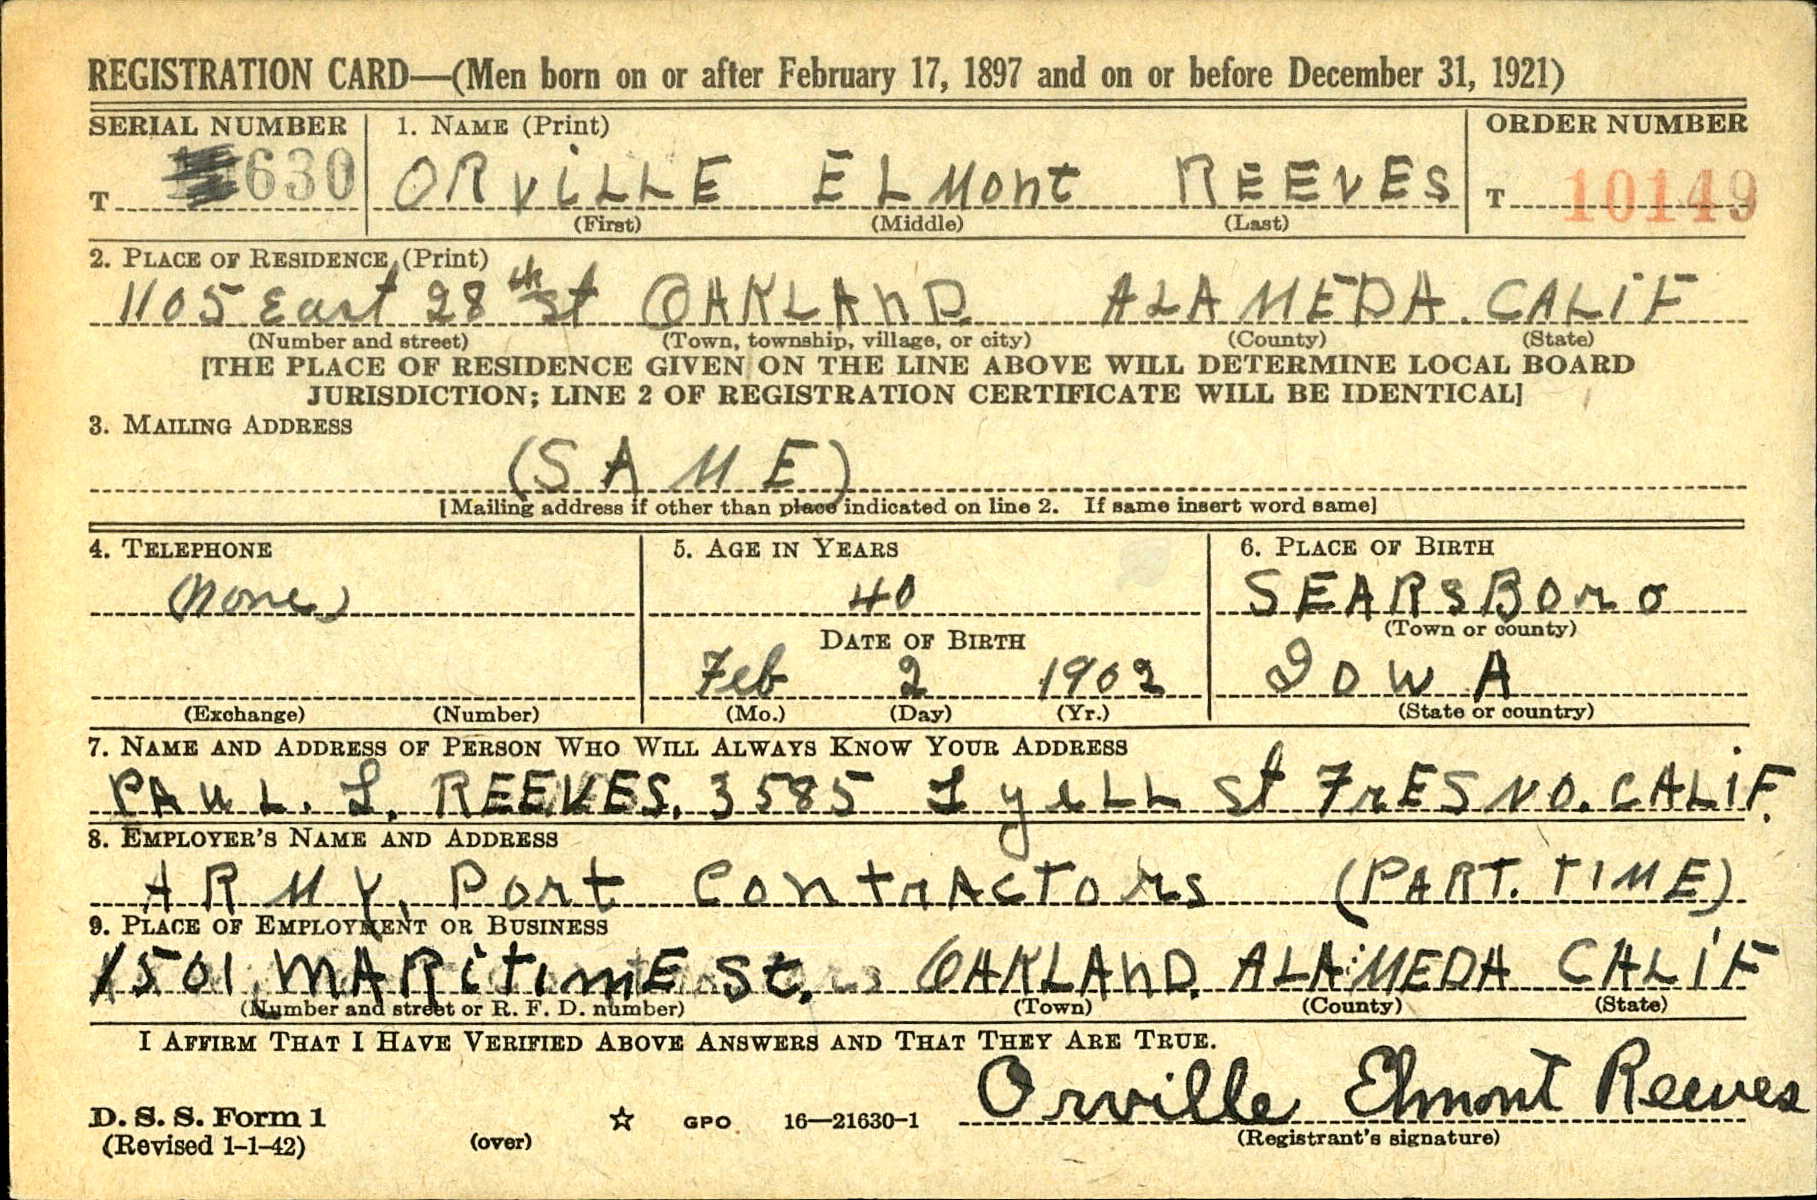 REGISTRATION CARD—(Men born on or after February 17, 1897 and on or before December 31, 1921)
SERIAL NUMBER 1. NAME (Print) ORDER NUMBER
T 630 ORViLLE ELMont REEVES T 10149
(First) (Middle) (Last)
2. PLACE OF RESIDENCE (Print)
1105 East 28th St OAKLAND. ALAMEDA. CALiF
(Number and street) (Town, township, village, or city) (County) (State)
[THE PLACE OF RESIDENCE GIVEN ON THE LINE ABOVE WILL DETERMINE LOCAL BOARD
JURISDICTION; LINE 2 OF REGISTRATION CERTIFICATE WILL BE IDENTICAL]
3. MAILING ADDRESS
(SAME)
[Mailing address if other than place indicated on line 2. If same insert word same]
4. TELEPHONE 5. AGE IN YEARS 6. PLACE OF BIRTH
(None) 40 SEARSBORO
(Town or county)
DATE OF BIRTH
Feb 2 1902 IOWA
(Exchange) (Number) (Mo.) (Day) (Yr.) (State or country)
7. NAME AND ADDRESS OF PERSON WHO WILL ALWAYS KNOW YOUR ADDRESS
PAUL. L. REEVES. 3585 Lyell St FrESNO. CALiF.
8. EMPLOYER'S NAME AND ADDRESS
ARMY, Port ContrActors (PART. TIME)
9. PLACE OF EMPLOYMENT OR BUSINESS
1501 MARitimE St. OAKLAND. ALAMEDA CALiF
(Number and street or R. F. D. number) (Town) (County) (State)
I AFFIRM THAT I HAVE VERIFIED ABOVE ANSWERS AND THAT THEY ARE TRUE.
Orville Elmont Reeves
D. S. S. Form 1 GPO 16—21630-1
(Revised 1-1-42) (over) (Registrant's signature)